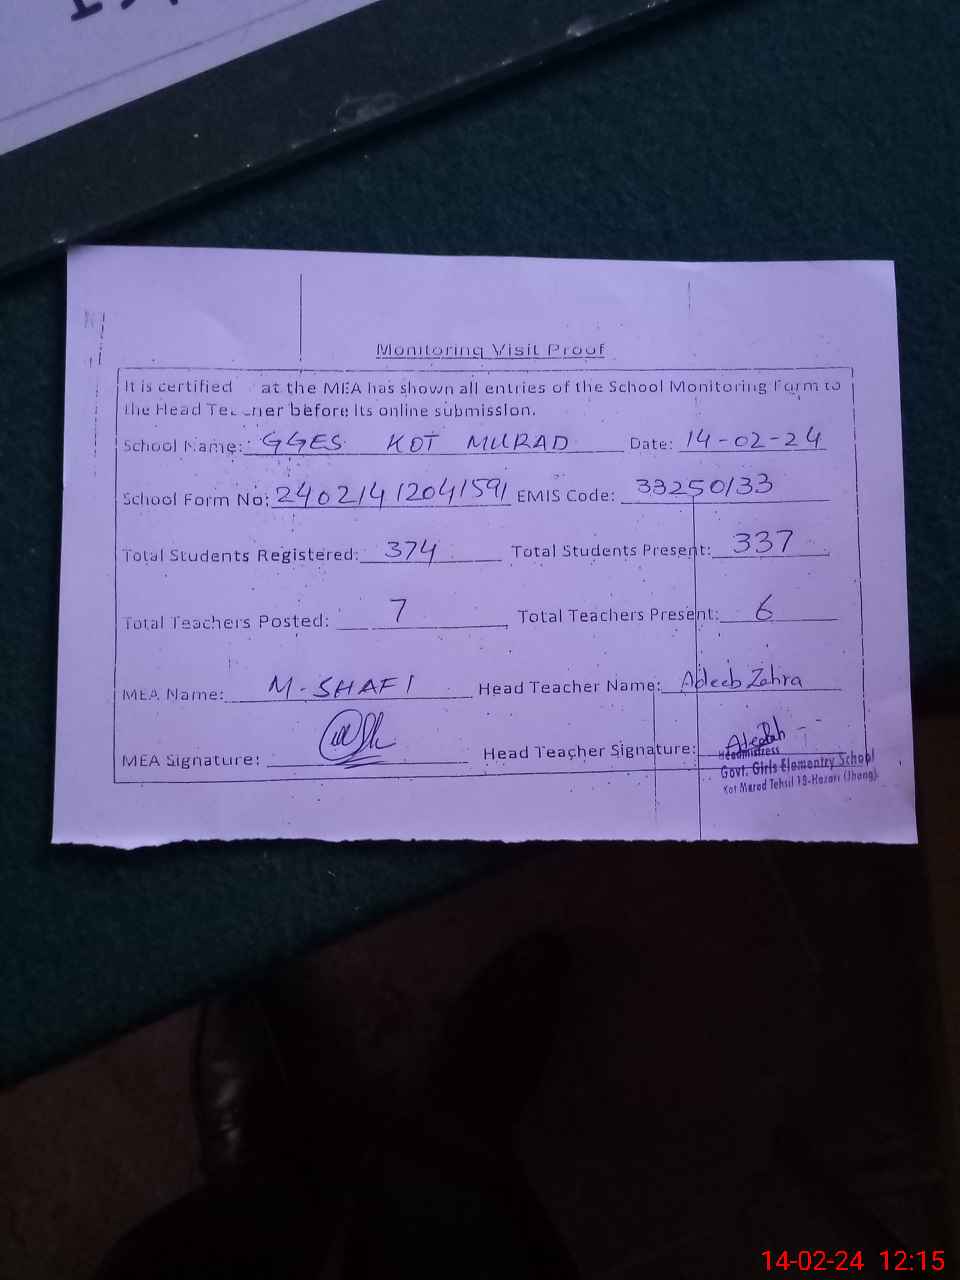 Monitoring Visit Proof
It is certified at the MEA has shown all entries of the School Monitoring Form to
the Head before its online submission.
School Name: GGES KOT MURAD Date: 14-02-24
School Form No: 24021412041591 EMIS Code: 33250133
Total Students Registered: 374 Total Students Present: 337
Total Teachers Posted: 7 Total Teachers Present: 6
MEA Name: M-SHAFI Head Teacher Name: Adeeb Zahra
MEA Signature: Head Teacher Signature:
Headmistress
Govt. Girls Elementry School
Kot Murad Tehsil 18-Hazari (Jhang)
14-02-24 12:15